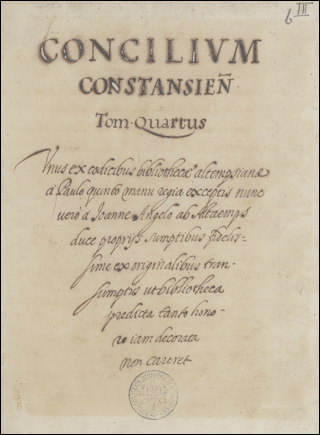 6 III
CONCILIVM
CONSTANSIEÑ
Tom. Quartus
Vnus ex codicibus bibliothecae altempsianae
a Paulo quinto manu regia exceptis nunc
vero a Joanne Angelo ab Altaemps
duce proprijs sumptibus fidelis-
sime ex originalibus tran-
sumptus ut bibliotheca
predicta tanto hono-
re iam decorata
non careret